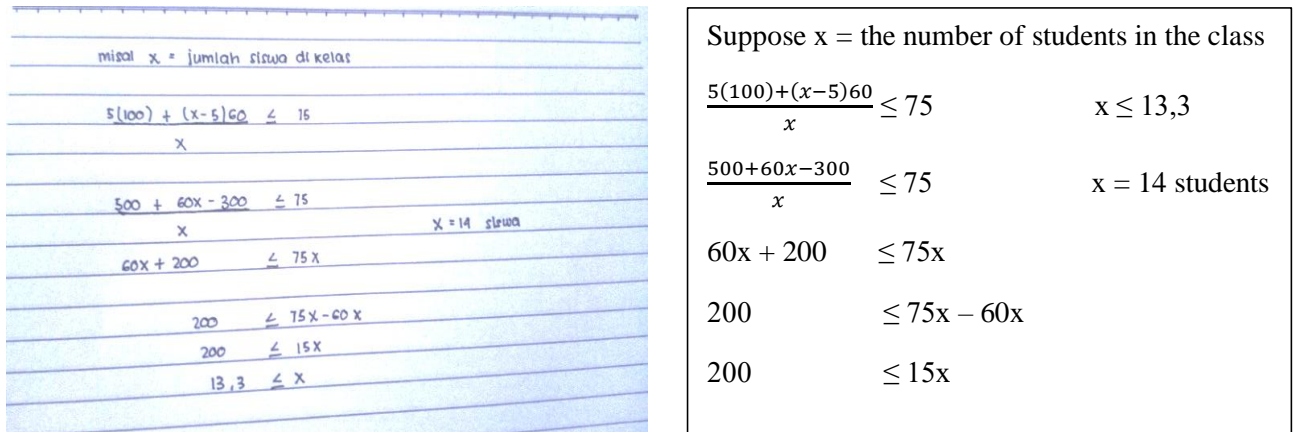 misal x = jumlah siswa di kelas
5(100) + (x-5)60 ≤ 75
x
500 + 60x - 300 ≤ 75
x
x = 14 siswa
60x + 200 ≤ 75x
200 ≤ 75x - 60x
200 ≤ 15x
13,3 ≤ x
Suppose x = the number of students in the class
5(100)+(x−5)60
x
≤ 75 x ≤ 13,3
500+60x−300
x
≤ 75 x = 14 students
60x + 200 ≤ 75x
200 ≤ 75x – 60x
200 ≤ 15x